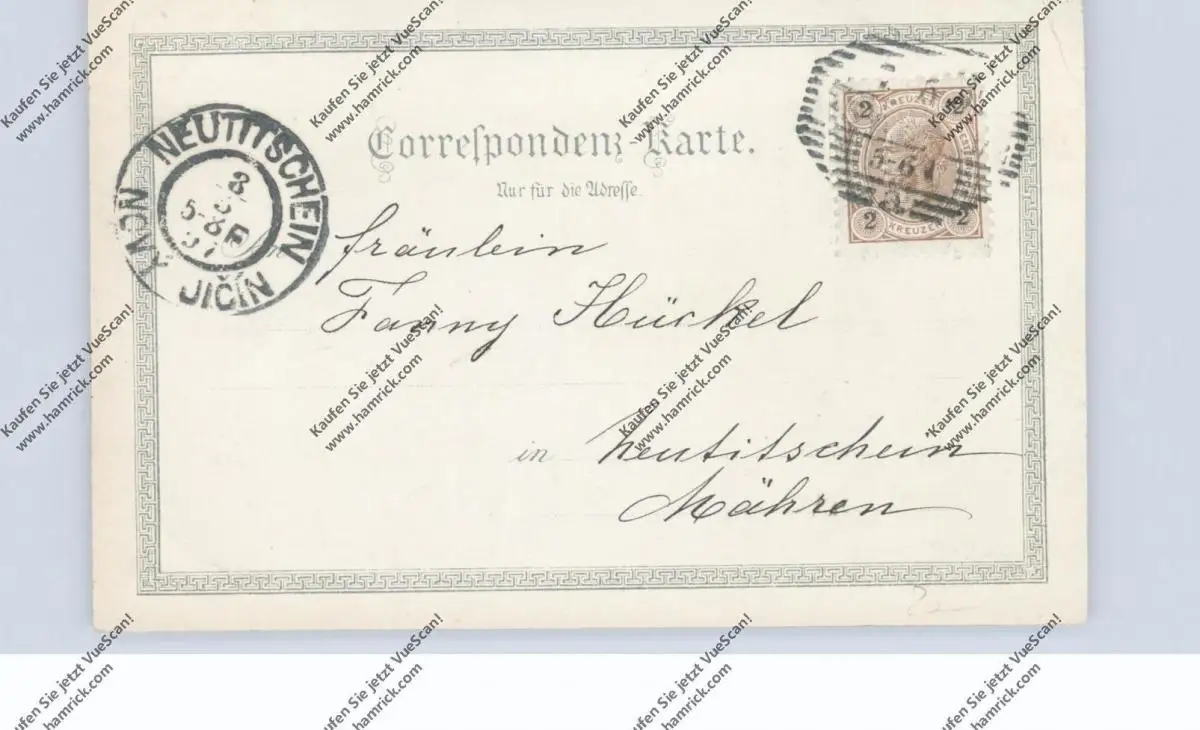 Kaufen Sie jetzt VueScan!
www.hamrick.com
Kaufen Sie jetzt VueScan!
www.hamrick.com
Kaufen Sie jetzt VueScan!
www.hamrick.com
Kaufen Sie jetzt VueScan!
www.hamrick.com
Correspondenz Karte.
Nur für die Adresse.
NEUTITSCHEIN
NOVÝ
JIČÍN
8
2 KREUZER 2
2 KREUZER 2
Fräulein
Fanny Hückel
in Neutitschein
Mähren
Kaufen Sie jetzt VueScan!
www.hamrick.com
Kaufen Sie jetzt VueScan!
www.hamrick.com
Kaufen Sie jetzt VueScan!
www.hamrick.com
Kaufen Sie jetzt VueScan!
www.hamrick.com
Kaufen Sie jetzt VueScan!
hamrick.com
Kaufen Sie jetzt VueScan!
www.hamrick.com
Kaufen Sie jetzt VueScan!
www.hamrick.com
Kaufen Sie jetzt VueScan!
www.hamrick.com